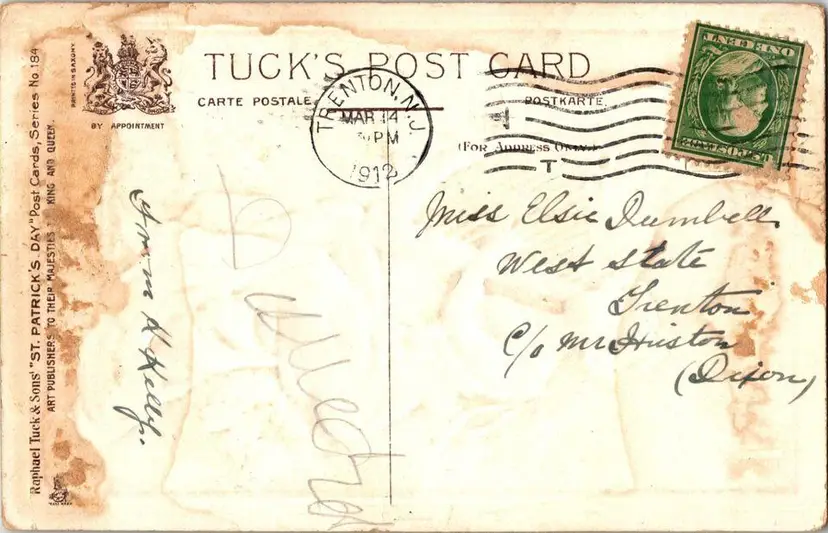 TUCK'S POST CARD
CARTE POSTALE.
POSTKARTE.
(FOR ADDRESS ONLY.)
BY APPOINTMENT
PRINTED IN SAXONY.
Raphael Tuck & Sons' "ST. PATRICK'S DAY" Post Cards, Series No. 184
ART PUBLISHERS TO THEIR MAJESTIES KING AND QUEEN.
TRENTON, N.J.
MAR 14
PM
1912
T
ONE CENT
Miss Elsie Dumbell
West State
Trenton
C/o Mr
(Dixon)
From H Kelly.